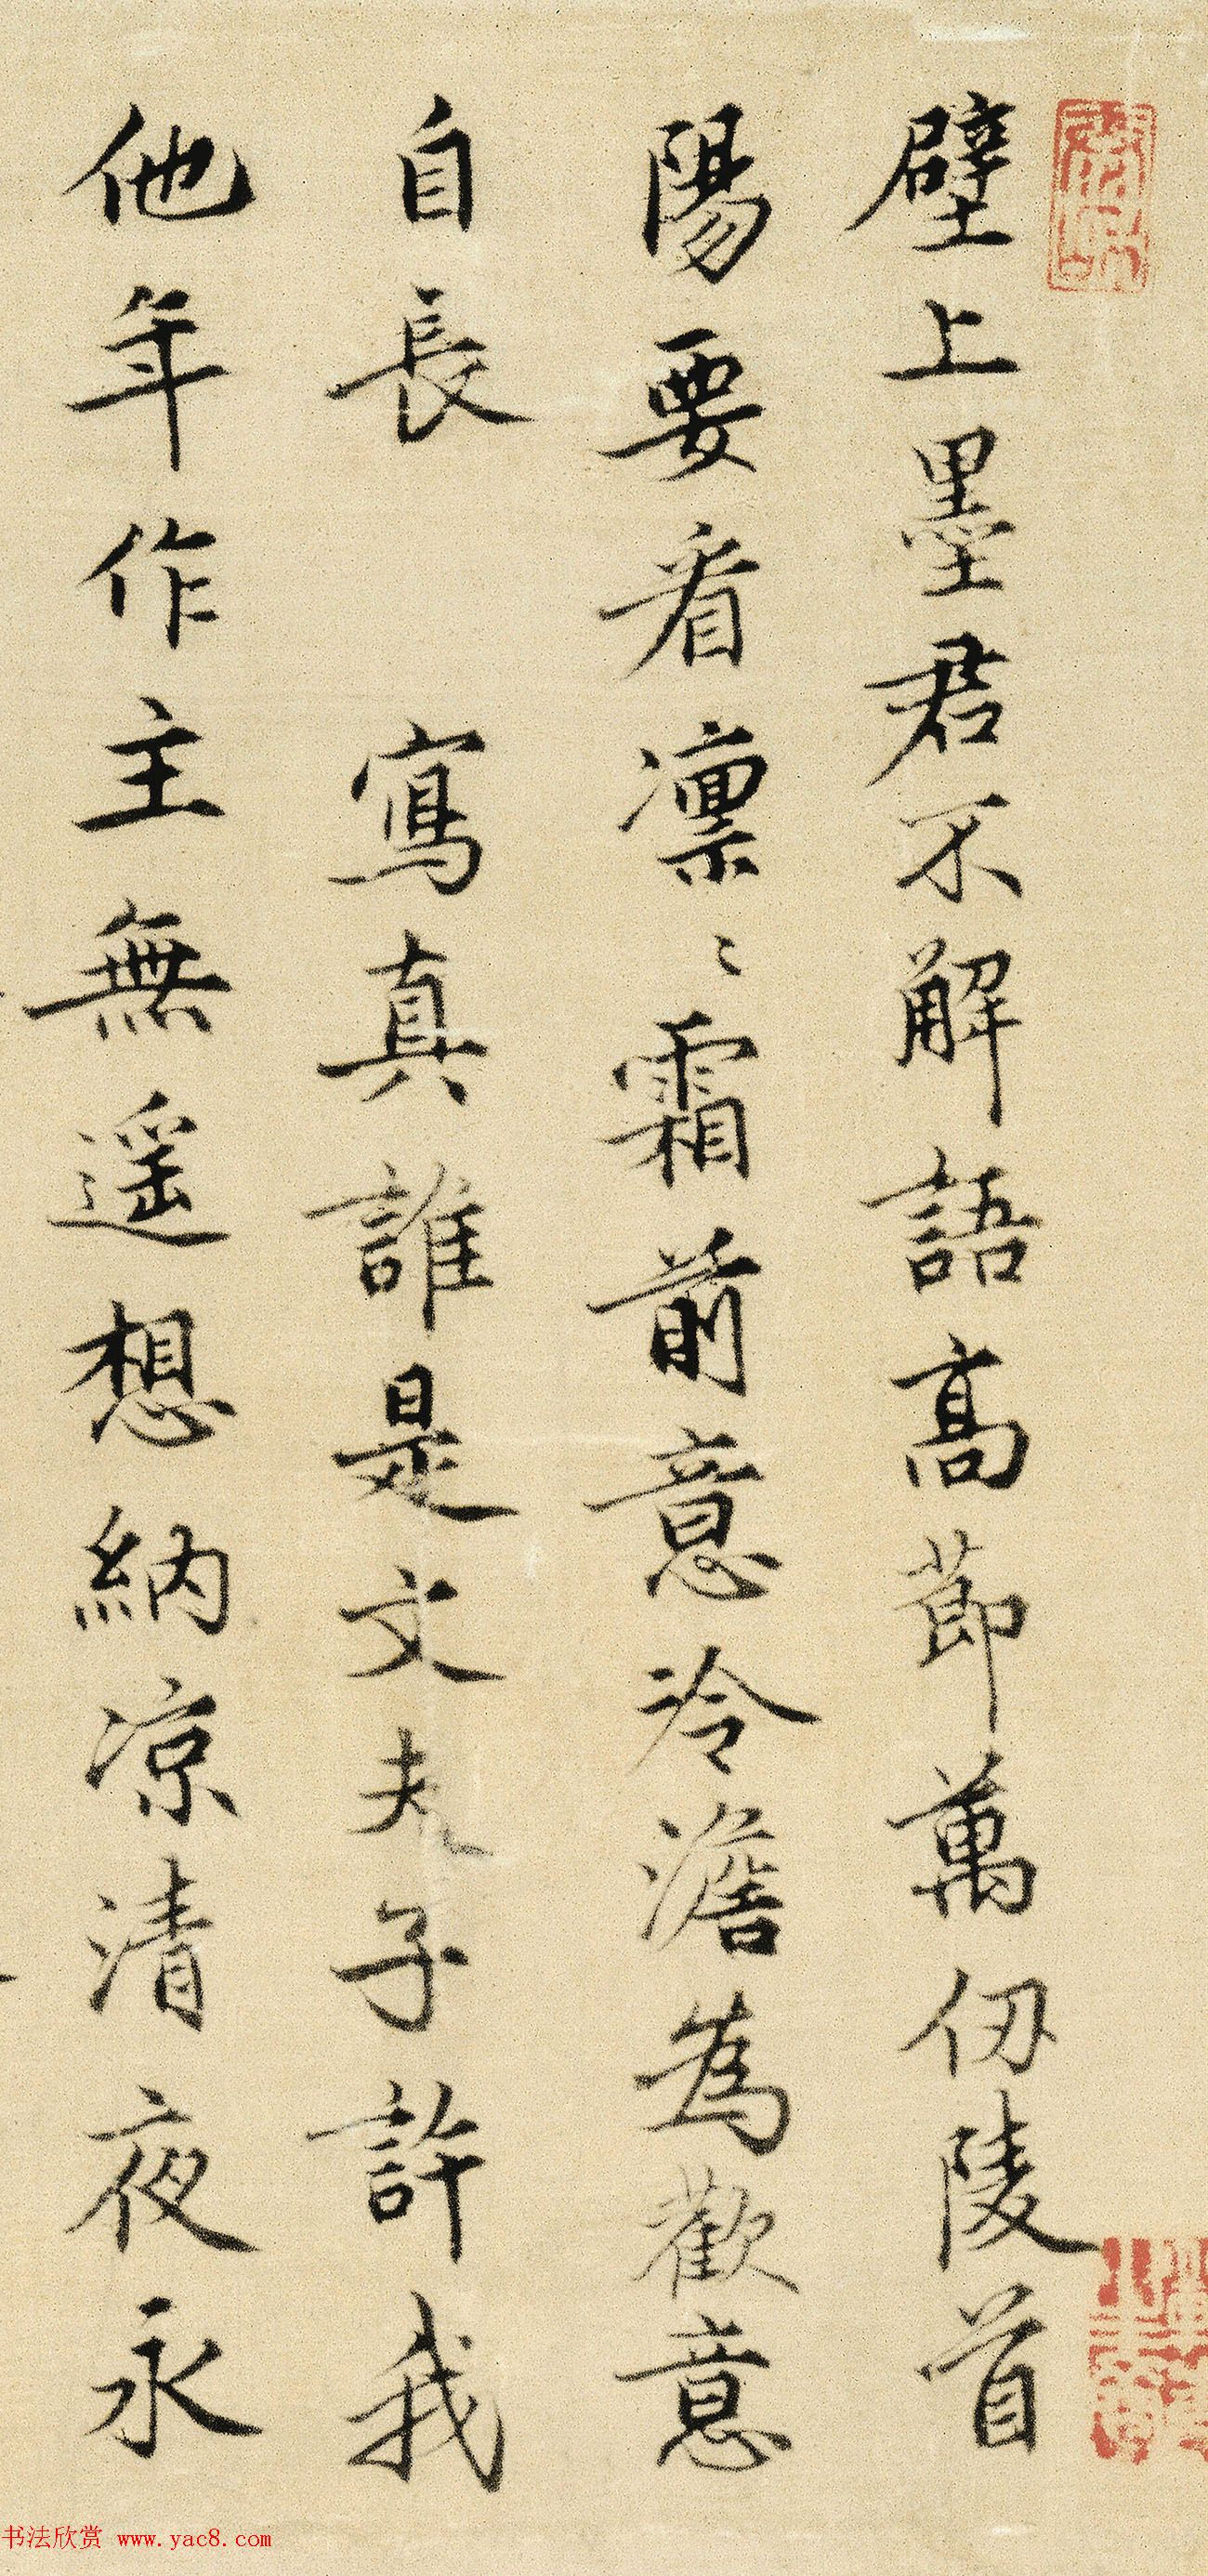 壁上墨君不解語高節萬仞陵首
陽要看凜〻霜前意冷澹為歡意
自長 寫真誰是文夫子許我
他年作主無遥想納凉清夜永
书法欣赏 www.yac8.com